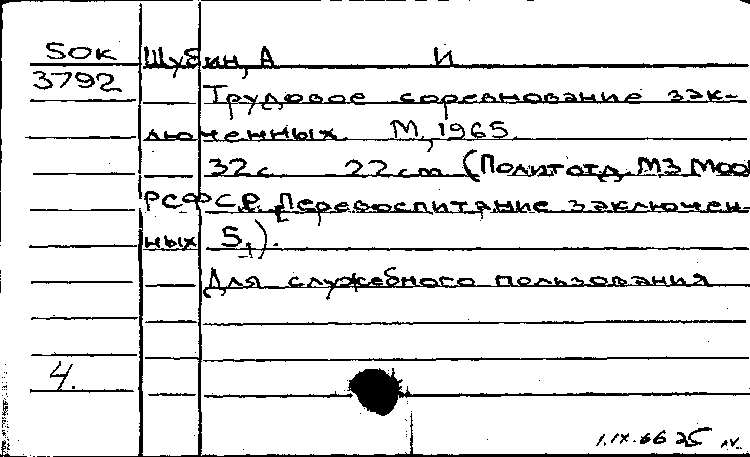 50к Шубин, А И
3792 Трудовое соревнование зак-
люченных. М., 1965.
32с. 22cm (Политотд. МЗ МООП
РСФСР. Перевоспитание заключен-
ных 5,).
Для служебного пользования
4.
1.IX.66 25